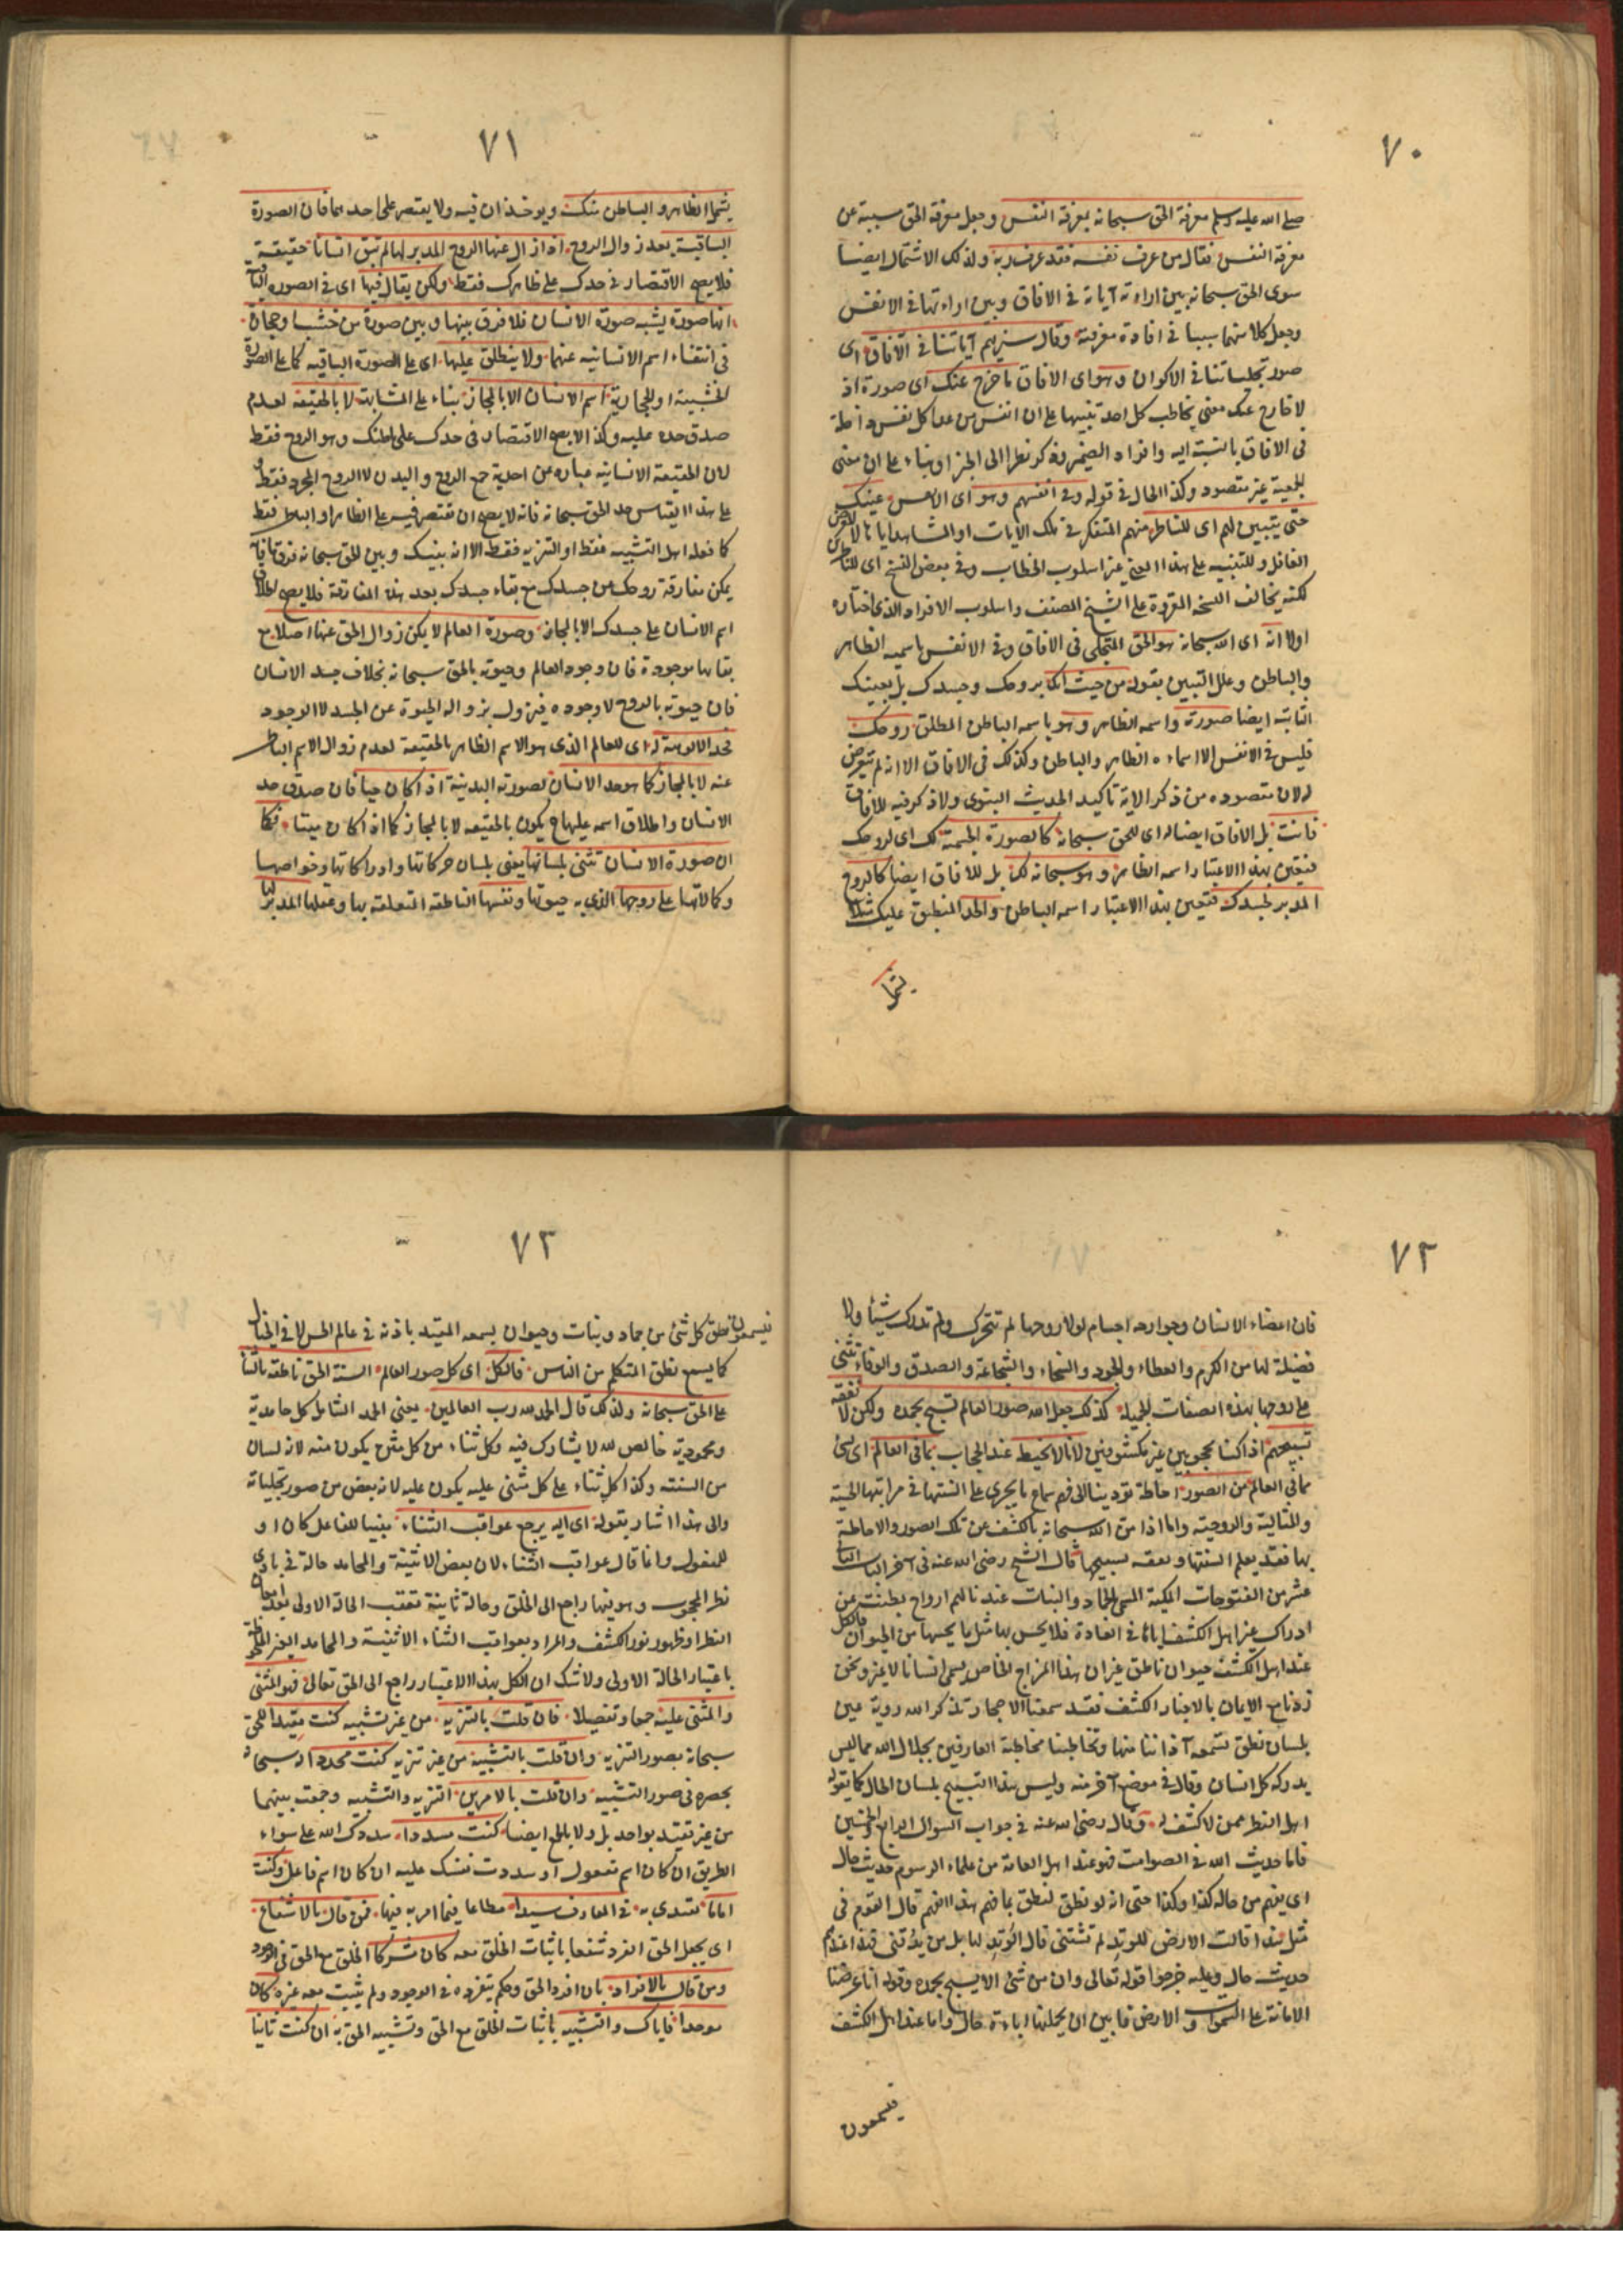 ٧٠
صلى الله عليه وسلم معرفة الحق سبحانه بمعرفة النفس وجعل معرفة الحق مسببة عن
معرفة النفس فقال من عرف نفسه فقد عرف ربه ولذلك الاشتمال ايضا
سوى الحق سبحانه بين اراءته آياته في الافاق وبين اراءتها في الانفس
وجعل كلا منهما سببا في افادة معرفته وقال سنريهم آياتنا في الآفاق اى
صور تجلياتنا في الاكوان وهو اى الافاق ما خرج عنك اى صورة اذ
لا خارج عنك معنى يخاطب كل احد تنبيها على ان انفس من عدا كل نفس داخلة
في الافاق بالنسبة اليه وافراد الضمير مذكر نظرا الى الجزء او بناء على ان معنى
الجمعية غير مقصود وكذا الحال في قوله وفي انفسهم وهو اى الانفس عينك
حتى يتبين لهم اى للناظر منهم المتفكر في تلك الايات او المشاهد اياها لا المعرض
الغافل وللتنبيه على هذا المعنى غير اسلوب الخطاب وفي بعض النسخ اى للناظرين
لكنه يخالف النسخة المقروة على الشيخ المصنف واسلوب الافراد الذى اختاره
اولا انه اى الله سبحانه هو الحق المتجلى في الافاق وفي الانفس باسميه الظاهر
والباطن وعلل التبيين بقوله من حيث انك بروحك وجسدك بل بعينك
الثابتة ايضا صورته واسمه الظاهر وهو باسمه الباطن المطلق روحك
فليس في الانفس الا اسماءه الظاهر والباطن وكذلك في الافاق الا انه لم يتعرض
له لان مقصوده من ذكر الاية تاكيد الحديث النبوى ولا ذكر فيه للافاق
فانت بل الافاق ايضا له اى للحق سبحانه كالصورة الجسمية لك اى لروحك
فتعين بهذا الاعتبار اسمه الظاهر وهو سبحانه لك بل للافاق ايضا كالروح
المدبر لجسدك فتعين بهذا الاعتبار اسمه الباطن والحد المنطبق عليك مثلا
يشمل
٧١
يشمل الظاهر والباطن منك ويوخذان فيه ولا يقتصر على احدهما فان الصورة
الباقية بعد زوال الروح اذا زال عنها الروح المدبر لها لم تبق انسانا حقيقة
فلا يصح الاقتصار في حدك على ظاهرك فقط ولكن يقال فيها اى في الصورة الباقية
انها صورة يشبه صورة الانسان فلا فرق بينها وبين صورة من خشب او حجارة
في انتفاء اسم الانسانيه عنهما ولا ينطلق عليها اى على الصورة الباقيه كما على الصورة
الخشبية او الحجارية اسم الانسان الا بالمجاز بناء على المشابهة لا بالحقيقة لعدم
صدق حده عليه وكذا لا يصح الاقتصار في حدك على باطنك وهو الروح فقط
لان الحقيقة الانسانيه عبارة عن احدية جمع الروح والبدن لا الروح المجرد فقط و
على هذا القياس حد الحق سبحانه فانه لا يصح ان تقتصر فيه على الظاهر او الباطن فقط
كما فعله اهل التشبيه فقط او التنزيه فقط الا انه بينك وبين الحق سبحانه فرق فانه
يمكن مفارقة روحك من جسدك مع بقاء جسدك بعد هذه المفارقة فلا يصح اطلاق
اسم الانسان على جسدك الا بالمجاز وصورة العالم لا يمكن زوال الحق عنها اصلا مع
بقائها موجودة فان وجود العالم وحيوته بالحق سبحانه بخلاف جسد الانسان
فان حيوته بالروح لا وجوده فيزول بزواله الحيوة عن الجسد لا الوجود
فحد الالوهية له اى للعالم الذى هو الاسم الظاهر بالحقيقة لعدم زوال الاسم الباطن
عنه لا بالمجاز كما هو حد الانسان لصورته البدنية اذا كان حيا فان صدق حد
الانسان واطلاق اسمه عليها ح يكون بالحقيقه لا بالمجاز كما اذا كان ميتا فكما
ان صورة الانسان تثنى بلسانها يعنى بلسان حركاتها وادراكاتها وخواصها
وكمالاتها على روحها الذى به حيوتها ونفسها الناطقة المتعلقة بها وعقلها المدبر لها
٧٢
فان اعضاء الانسان وجوارحه اجسام لولا روحها لم تتحرك ولم تدرك شيئا ولا
فضيلة لها من الكرم والعطاء والجود والسخاء والشجاعة والصدق والوفاء تثنى
على روحها بهذه الصفات الجميله كذلك جعل الله صور العالم تسبح بحمده ولكن لا نفقه
تسبيحهم اذا كنا محجوبين غير مكشوفين لانا لا نحيط عند الحجاب بما في العالم اى بشئ
مما في العالم من الصور احاطة تؤدينا الى فهم سماع ما يجرى على السنتها في مراتبها الحسية
والمثالية والروحية واما اذا من الله سبحانه بالكشف عن تلك الصور والاحاطة
بها فقد يعلم السنتها ويفقه تسبيحها قال الشيخ رضى الله عنه في آخر الباب الثانى
عشر من الفتوحات المكية المسمى بالجماد والنبات عندنا لهم ارواح بطنت عن
ادراك غير اهل الكشف اياها في العادة فلا يحس بها مثل ما يحسها من الحيوان فالكل
عند اهل الكشف حيوان ناطق غير ان هذا المزاج الخاص يسمى انسانا لا غير ونحن
زدنا مع الايمان بالاخبار الكشف فقد سمعنا الاحجار تذكر الله روية عين
بلسان نطق تسمعه آذاننا منها وتخاطبنا مخاطبة العارفين بجلال الله مما ليس
يدركه كل انسان وقال في موضع آخر منه وليس هذا التسبيح بلسان الحال كما يقوله
اهل النظر ممن لا كشف له وقال رضى الله عنه في جواب السوال الرابع والخمسين
فاما حديث الله في الصوامت فهو عند اهل العامة من علماء الرسوم حديث حال
اى يفهم من حاله كذا وكذا حتى انه لو نطق لنطق بما فهم هذا الفهم قال القوم في
مثل هذا قالت الارض للوتد لم تشقنى قال الوتد لها سل من يدقنى فهذا عندهم
حديث حال وعليه خرجوا قوله تعالى وان من شئ الا يسبح بحمده وقوله انا عرضنا
الامانة على السموات والارض فابين ان يحملنها اباءة حال واما عند اهل الكشف
فيسمعون
٧٣
فيسمعون نطق كل شئ من جماد ونبات وحيوان يسمعه المقيد باذنه في عالم الحس لا في الخيال
كما يسمع نطق المتكلم من الناس فالكل اى كل صور العالم السنة الحق ناطقة بالثناء
على الحق سبحانه ولذلك قال الحمد لله رب العالمين يعنى الحمد الشامل كل حامدية
ومحمودية خالص لله لا يشارك فيه وكل ثناء من كل مثن يكون منه لانه لسان
من السنته وكذا كل ثناء على كل مثنى عليه يكون عليه لانه بعض من صور تجلياته
والى هذا اشار بقوله اى اليه يرجع عواقب الثناء مبنيا للفاعل كان او
للمفعول وانما قال عواقب الثناء لان بعض الاثنية والمحامد حاله في بادى
نظر المحجوب وهو فيها راجع الى الخلق وحالة ثانية تعقب الحالة الاولى بعد امعان
النظر او ظهور نور الكشف والمراد بعواقب الثناء الاثنية والمحامد الغير
باعتبار الحالة الاولى ولا شك ان الكل بهذا الاعتبار راجع الى الحق تعالى فهو المثنى
والمثنى عليه جمعا وتفصيلا فان قلت بالتنزيه من غير تشبيه كنت مقيدا للحق
سبحانه بصور التنزيه وان قلت بالتشبيه من غير تنزيه كنت محددا له سبحانه
بحصره في صور التشبيه وان قلت بالامرين التنزيه والتشبيه وجمعت بينهما
من غير تقيد بواحد بل ولا بالجمع ايضا كنت مسددا سددك الله على سواء
الطريق ان كان اسم مفعول او سددت نفسك عليه ان كان اسم فاعل وكنت
اماما تقتدى به في المعارف سيدا مطاعا فيما امر به فيها فمن قال بالاشفاع
اى بجعل الحق الفرد شفعا باثبات الخلق معه كان مشركا الخلق مع الحق في الوجود
ومن قال بالافراد بان افرد الحق وحكم بتفرده في الوجود ولم يثبت معه غيره كان
موحدا فاياك والتشبيه باثبات الخلق مع الحق وتشبيه الحق به ان كنت ثانيا